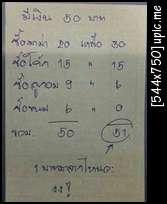 มีเงิน 50 บาท
ซื้อเสื้อ 20 เหลือ 30
ซื้อโค้ก 15 " 15
ซื้อลูกอม 9 " 6
ซื้อขนม 6 " 0
รวม. 50 51
1 บาทมาจากไหนวะ
งง ๆ
[544x750] upic.me